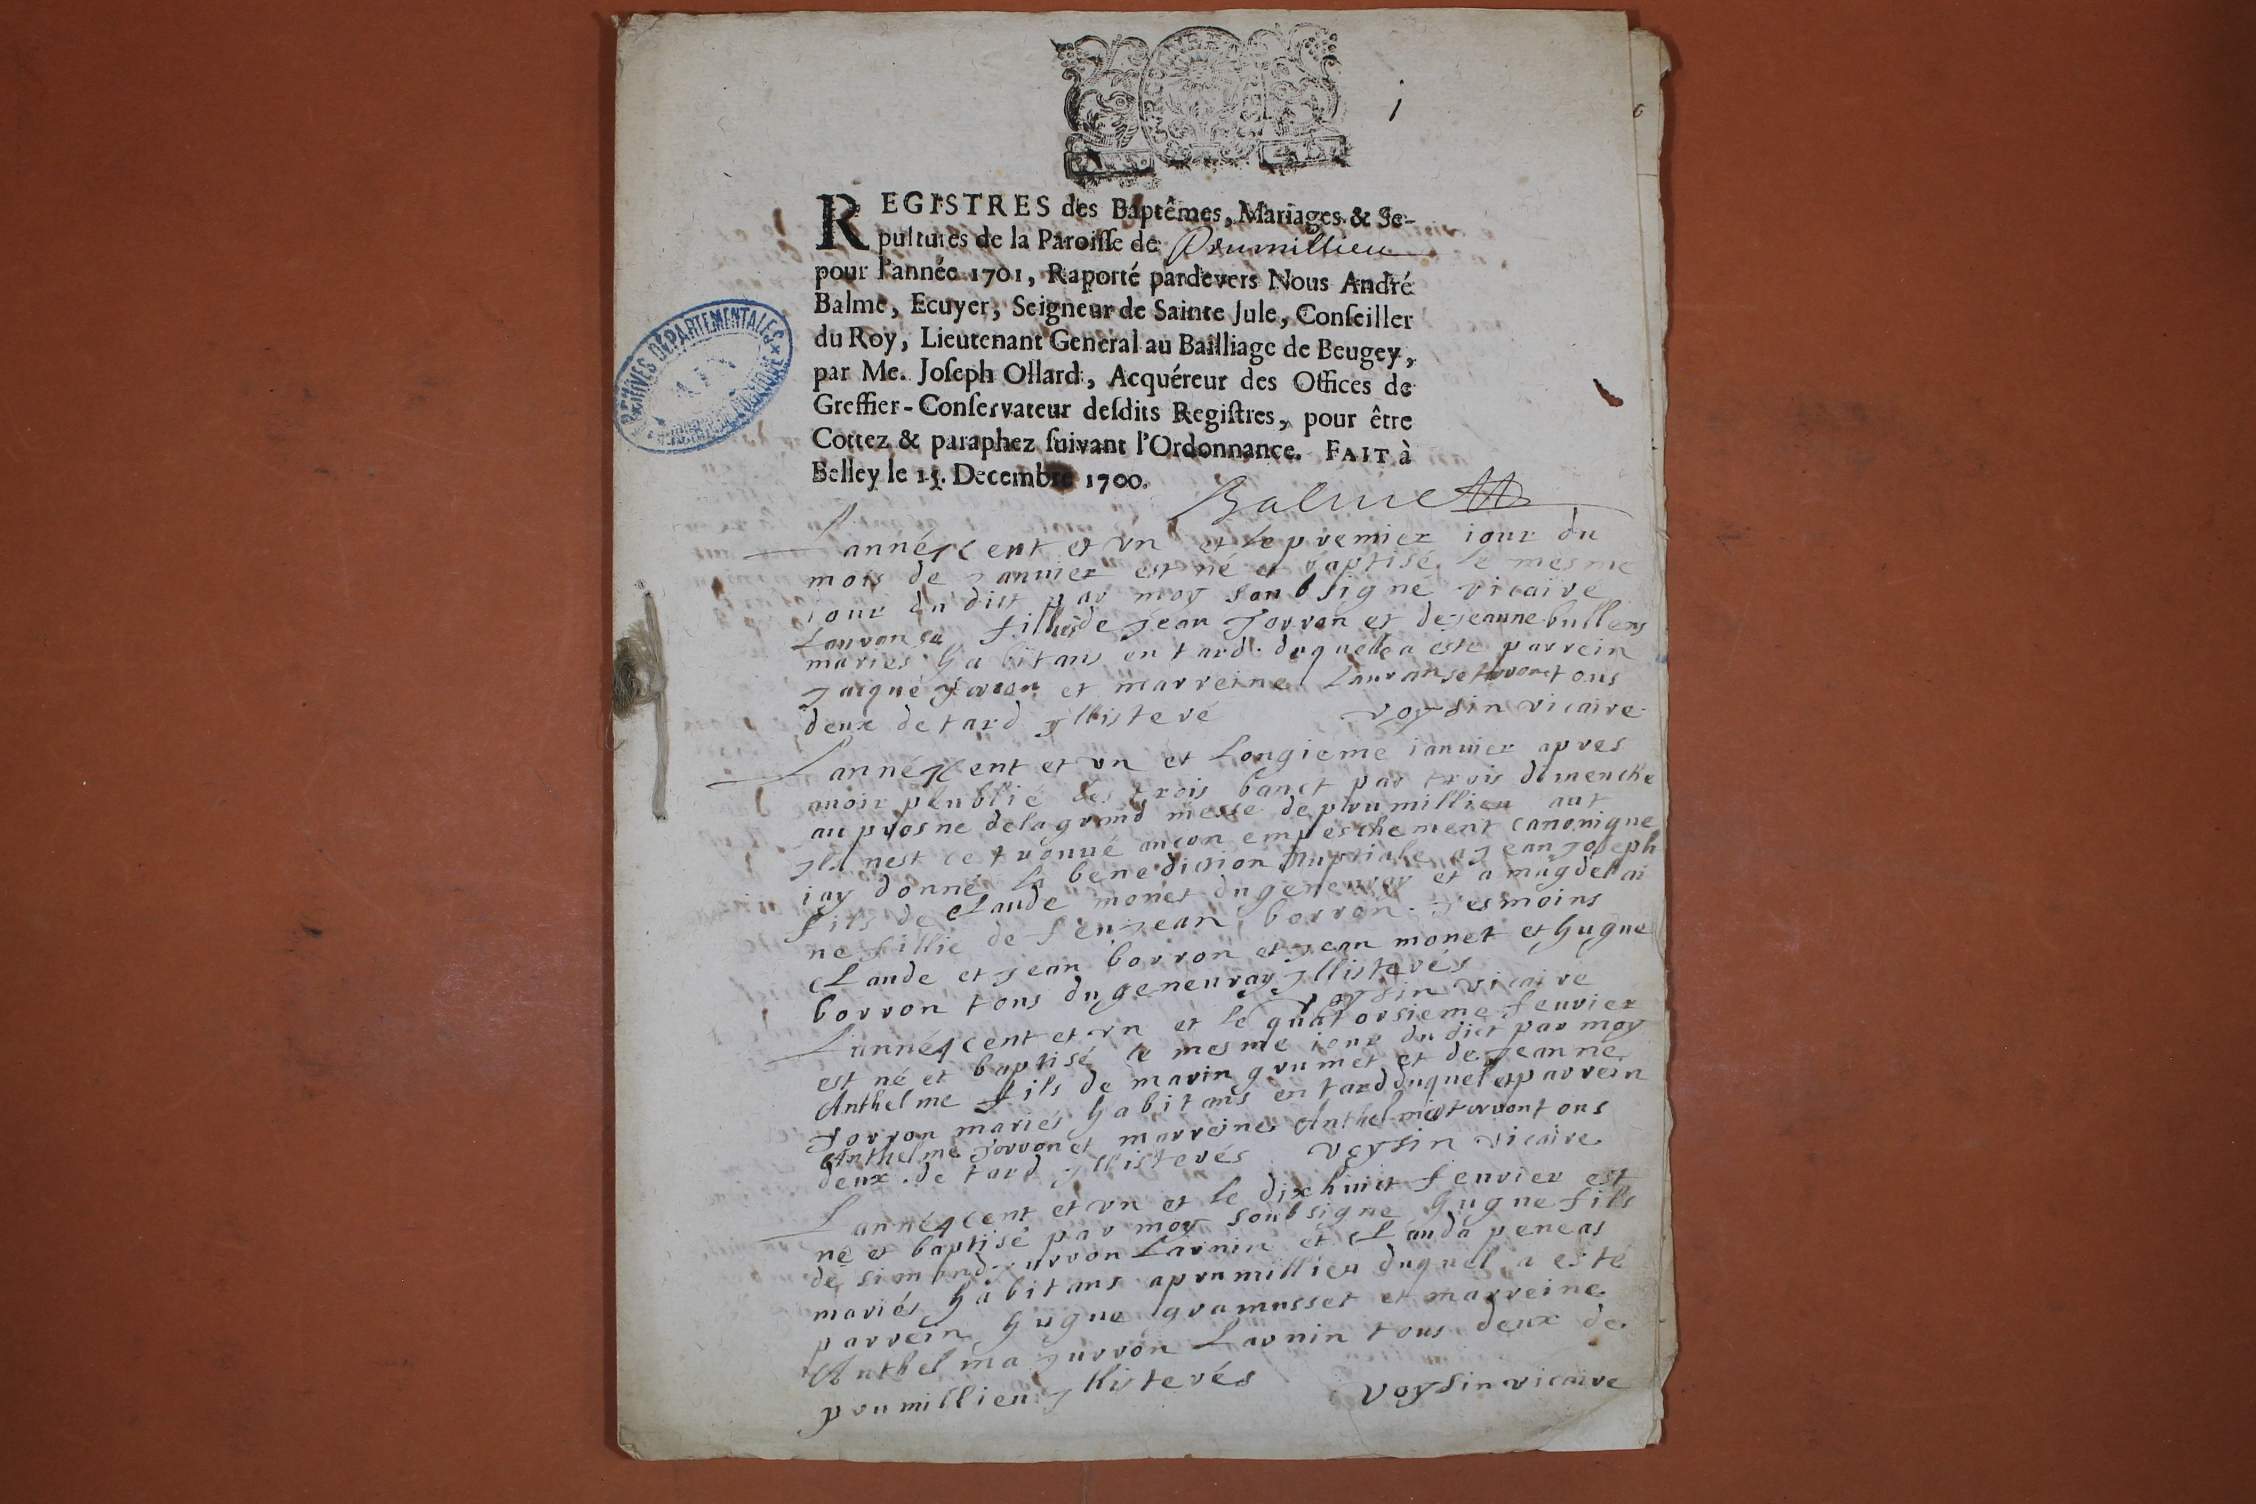 i
REGISTRES des Baptêmes, Mariages & Se-
pultures de la Paroisse de Prumillieu
pour l'année 1701, Raporté pardevers Nous André
Balme, Ecuyer, Seigneur de Sainte Jule, Conseiller
du Roy, Lieutenant General au Bailliage de Beugey,
par Me. Joseph Ollard, Acquéreur des Offices de
Greffier-Conservateur desdits Registres, pour être
Cottez & paraphez suivant l'Ordonnance. FAIT à
Belley le 15. Decembre 1700.
Balme
ARCHIVES DÉPARTEMENTALES AIN
Lanné 7 cent et vn et le premier iour du
mois de ianuier est né et baptisé le mesme
iour du dict par moy soubsigné vicaire
fille de jean Jorron et de jeanne bullens
mariés habitans en tard duquelle a esté parrein
et marreine tous
deux de tard yllisteré voysin vicaire
Lanné 7 cent et vn et Longieme ianuier apres
auoir peublié les trois banct par trois dimenche
au prosne de la grand messe de prumillieu aut
yl nest ce trouué aucon empeschement canonique
iay donné la benediction nuptiale a jean joseph
fils de Claude monet du geneuray et a magdelai
ne fillie de feu jean borron. tesmoins
Claude et jean borron et jean monet et hugue
borron tous du geneuray yllisterés
voysin vicaire
Lanné 7 cent et vn et le quatorsieme feurier
est né et baptisé le mesme iour du dict par moy
Anthelme fils de marin grumet et de jeanne
Jorron mariés habitans en tard duquel et parrein
Anthelme Jorron et marreine tous
deux de tard yllisterés voysin vicaire
Lanné 7 cent et vn et le dixhuict feurier est
né et baptisé par moy soubsigne hugue fils
de simond Larnin et Clauda peneas
mariés habitans a prumillieu duquel a esté
parrein hugue gramusset et marreine
Anthelma jurron Larnin tous deux de
prumillieu yllisterés voysin vicaire